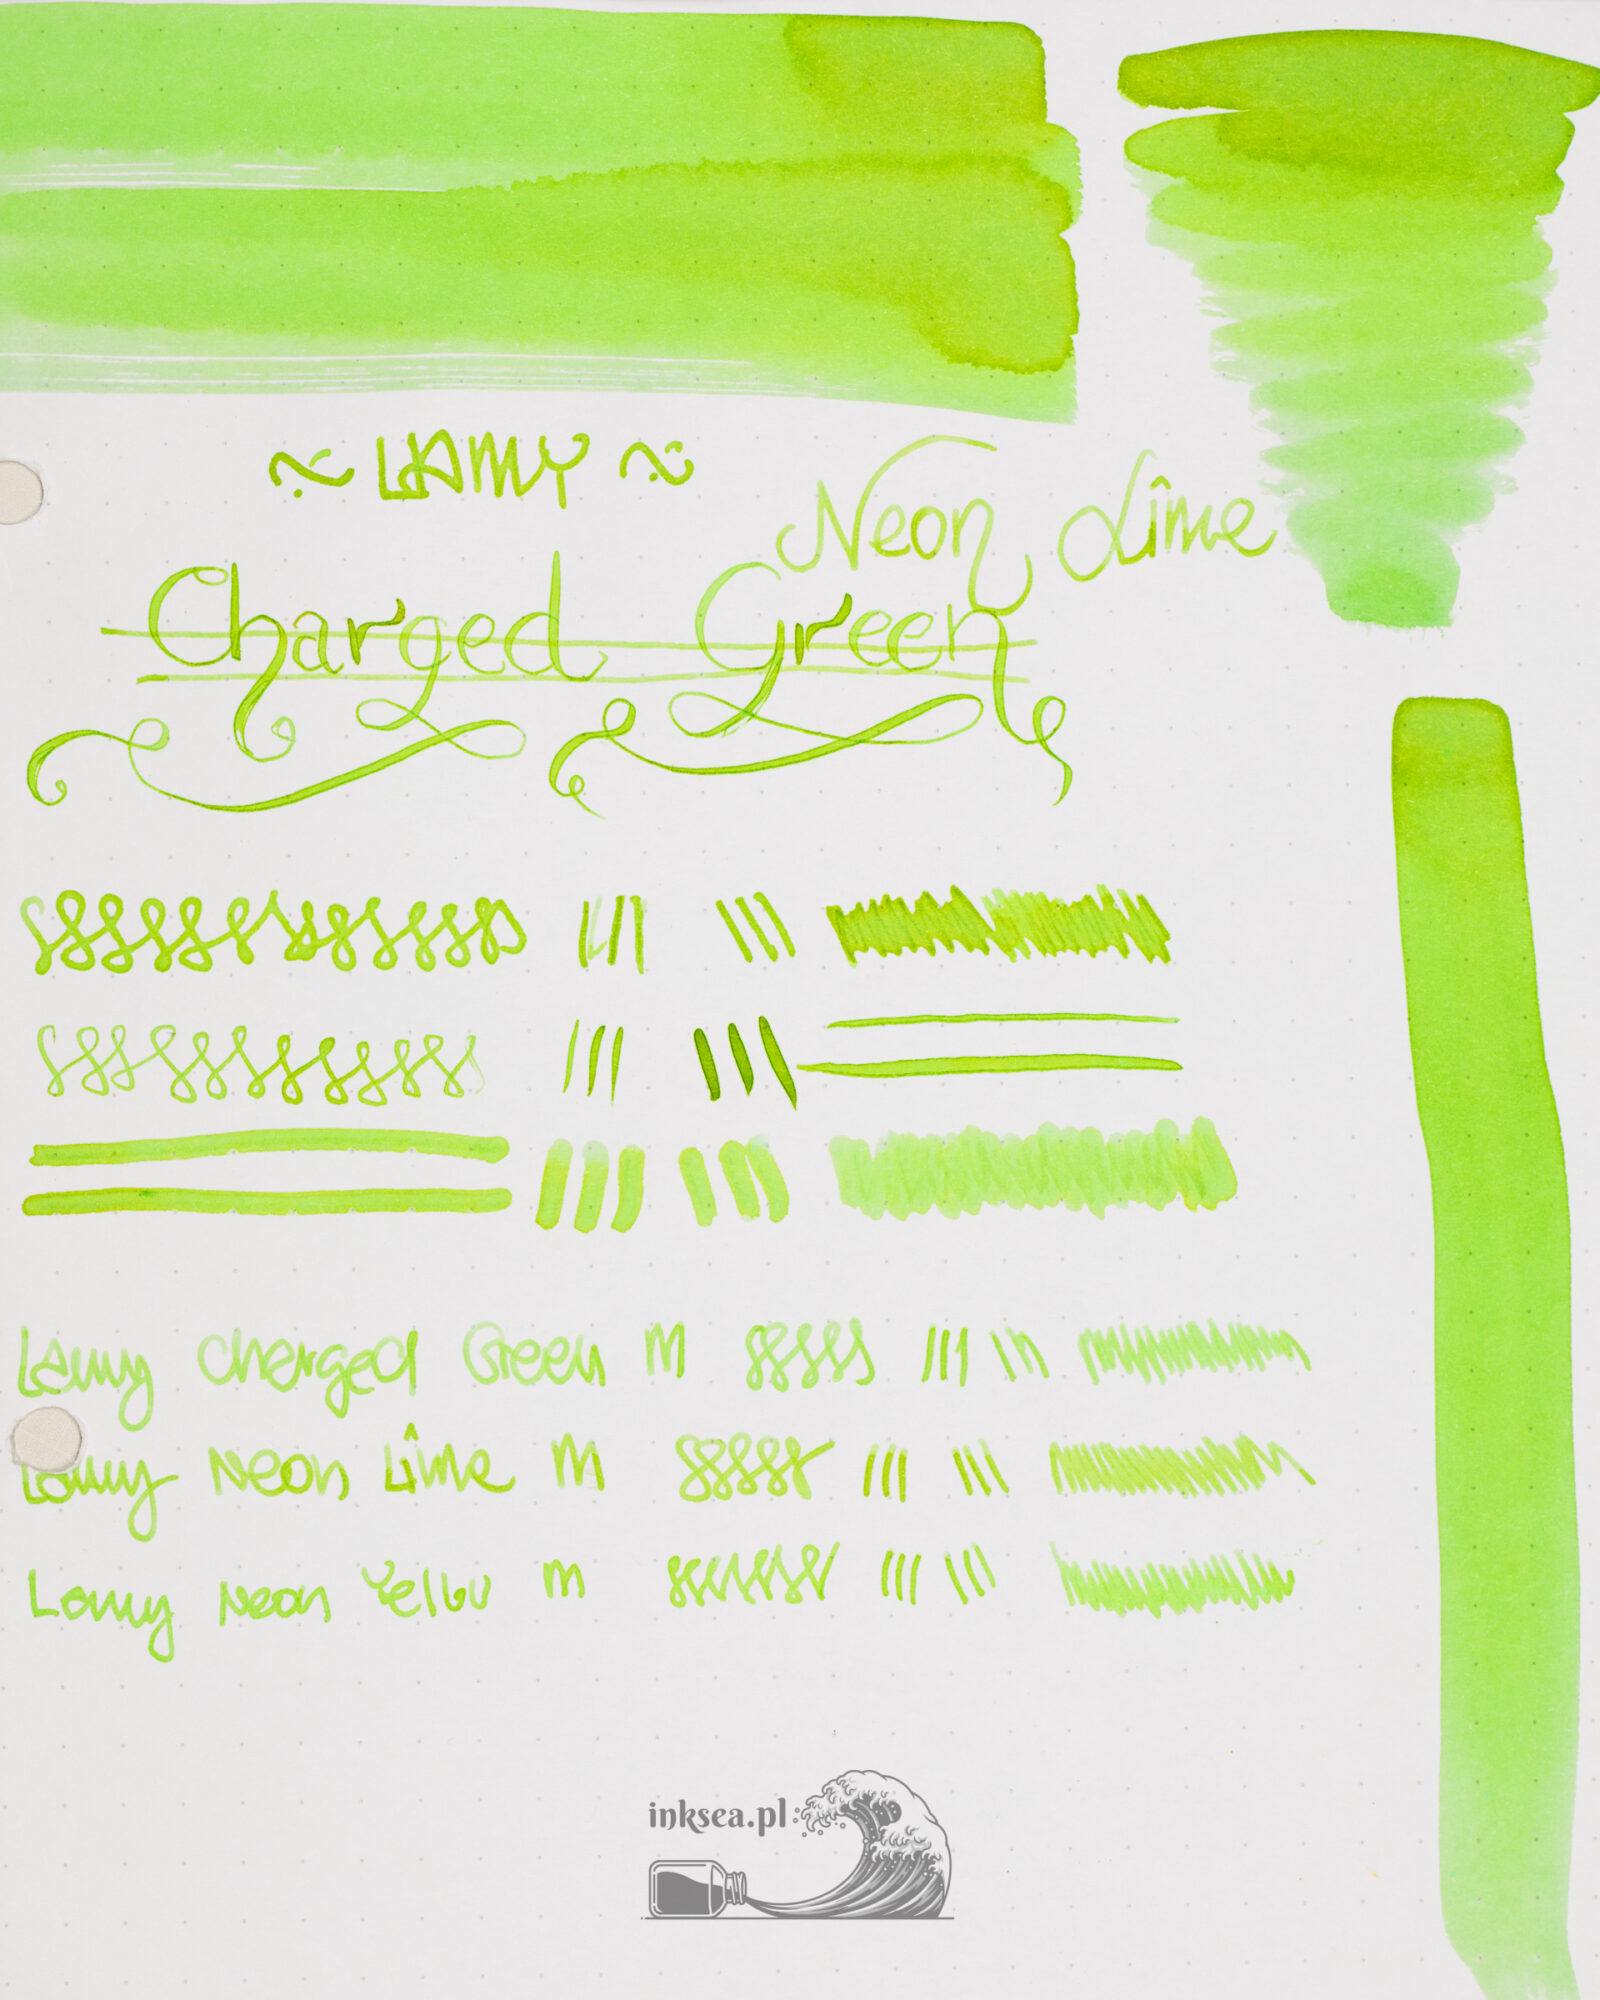 ~ LAMY ~
Neon Lime
Charged Green
Lamy Charged Green M
Lamy Neon Lime M
Lamy Neon Yellow M
inksea.pl